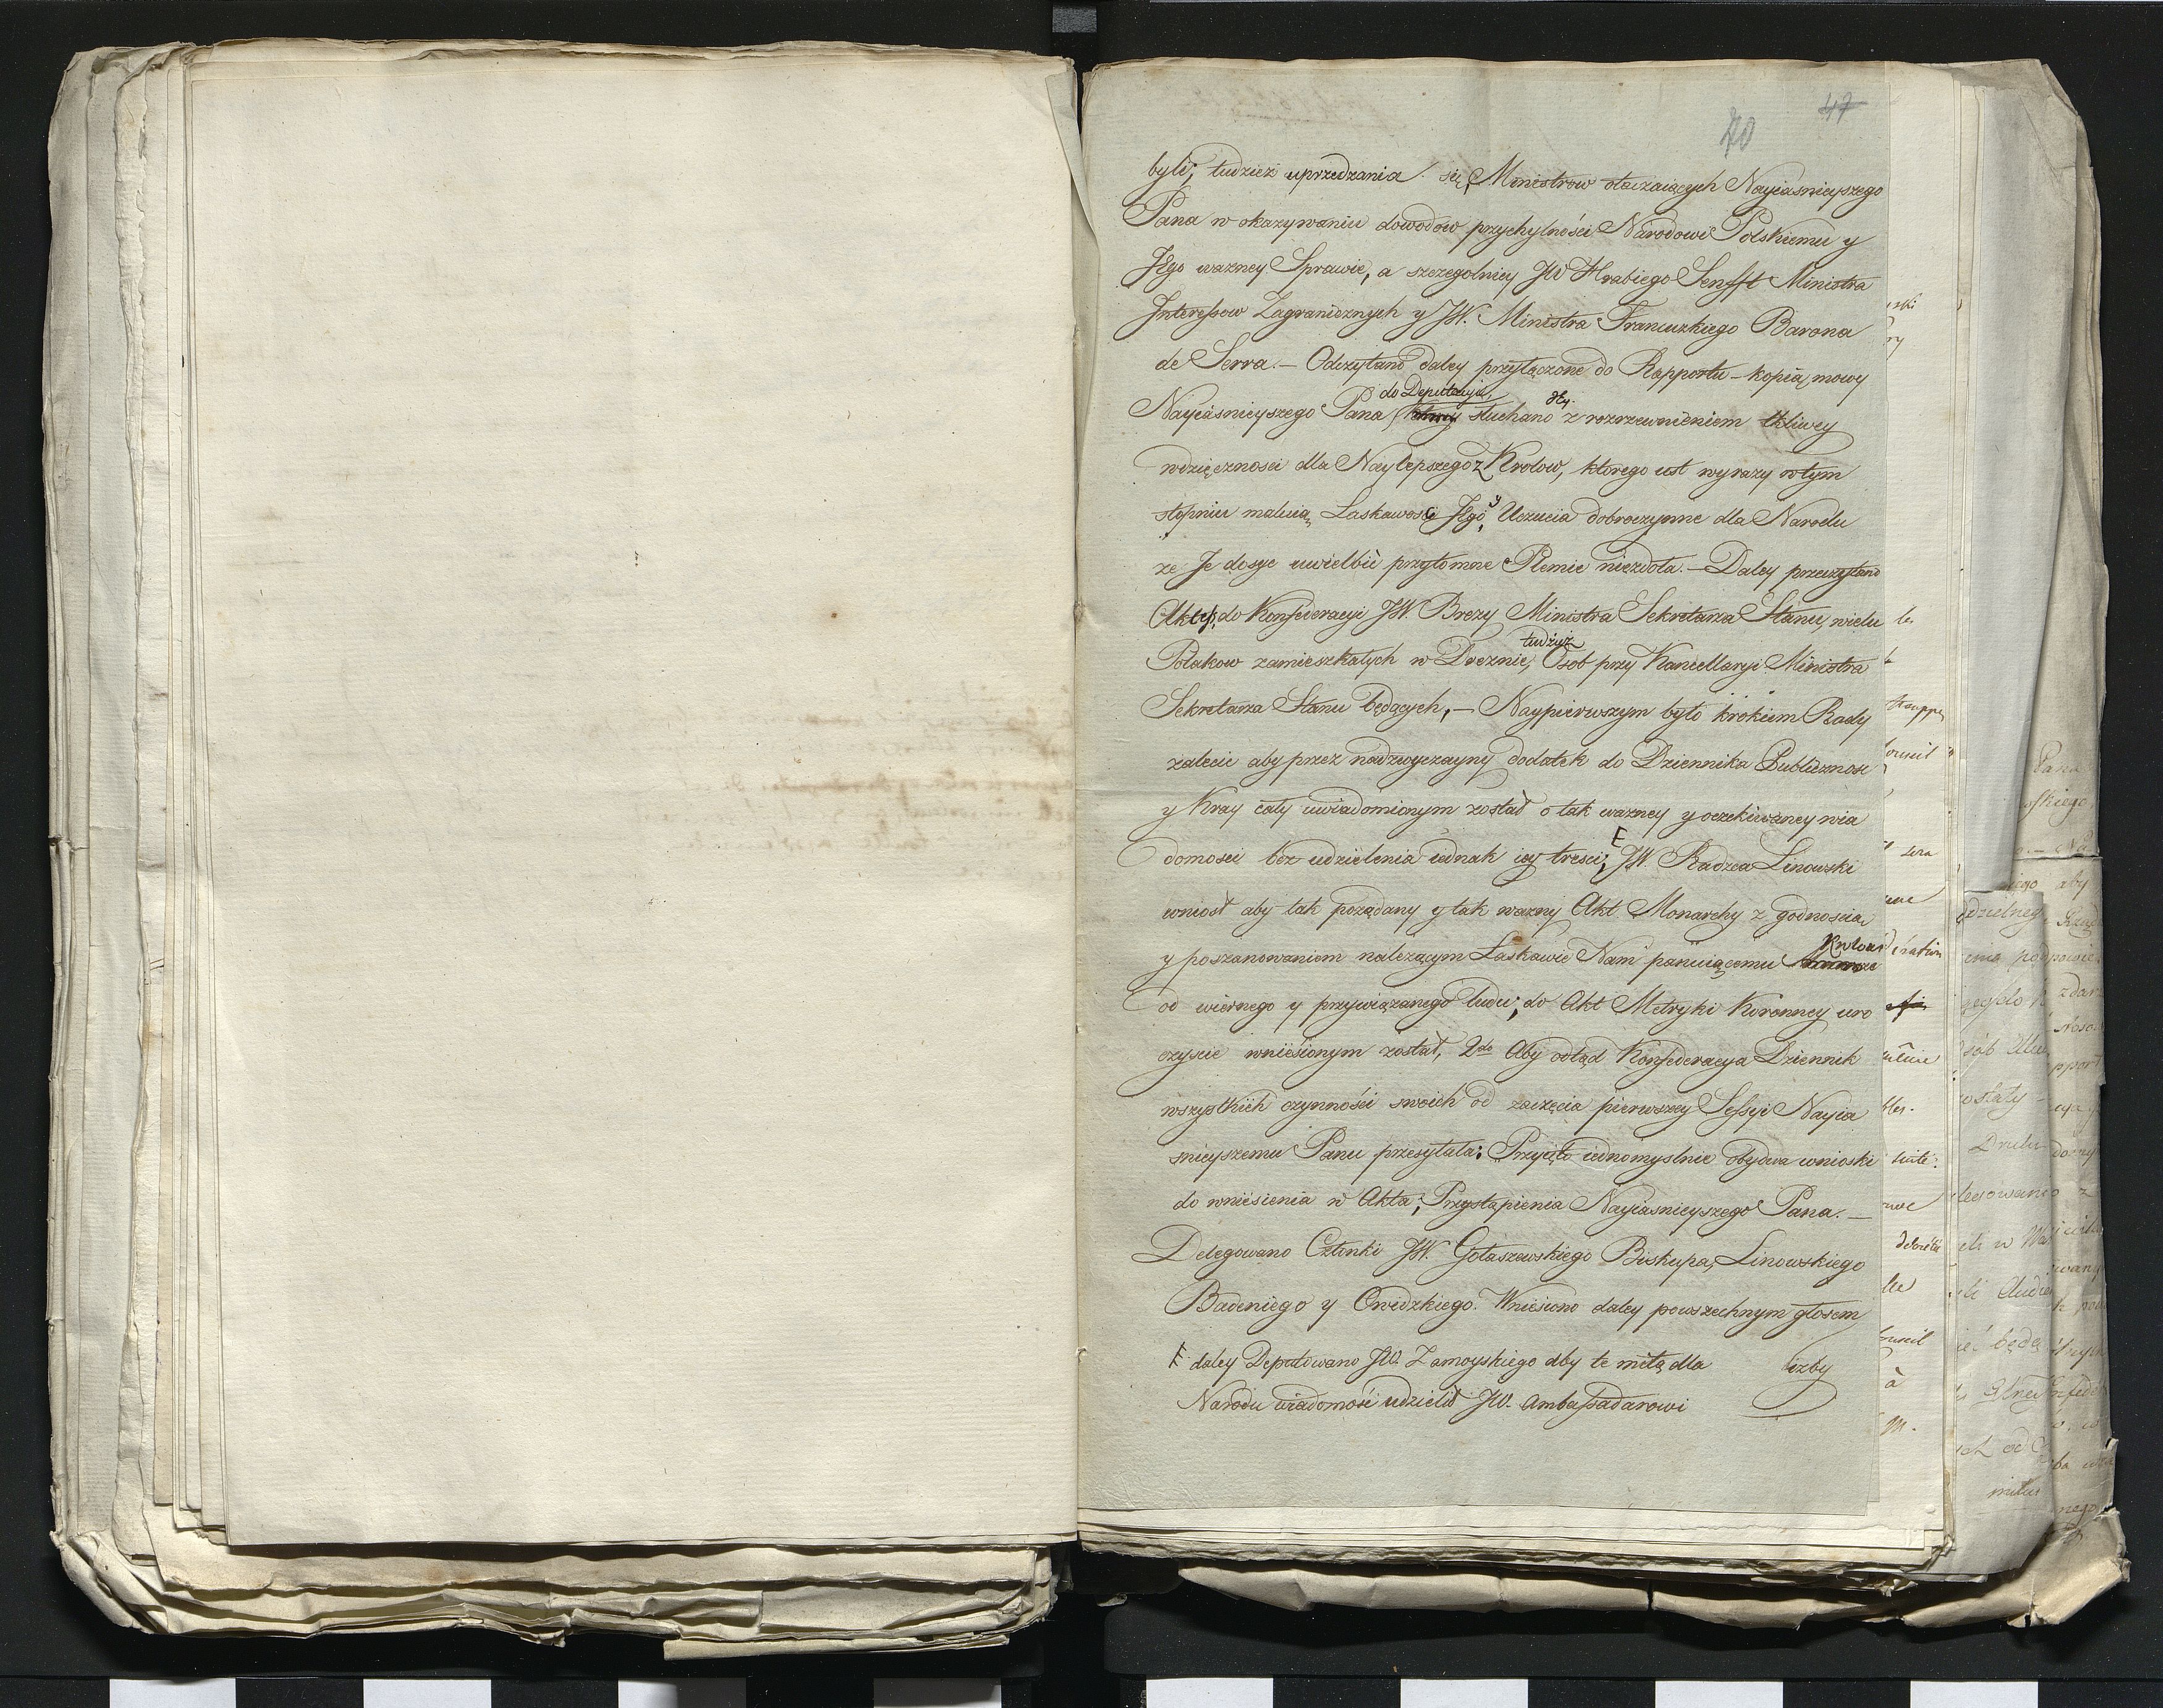 47
70
byli; tudzież uprzedzania się, Ministrow otaczaiących Nayiasnieyszego
Pana w okazywaniu dowodow przychylności Narodowi Polskiemu y
Jego ważney Sprawie, a szczegolniey JW Hrabiego Senfft Ministra
Interessow Zagranicznych y JW. Ministra Francuzkiego Barona
de Serra. – Odczytano daley przyłączone do Rapportu – kopią mowy
do Deputacyi,
Nayiasnieyszego Pana, słuchano Jéy z rozrzewnieniem tkliwey
wdzięcznosci dla Naylepszego z Krolow, ktorego ust wyrazy w tym
stopniu maluią Laskawość Jego y Uczucia dobroczynne dla Narodu
ze Je dosyc uwielbić przytomne Plemie niezdoła. – Daley przeczytano
Akces, do Konfederacyi JW. Brezy Ministra Sekretarza Stanu, wielu
tudzież
Polakow zamieszkałych w Dreznie, Osob przy Kancellaryi Ministra
Sekretarza Stanu będących, – Naypierwszym było krokiem Rady
zalecic aby przez nadzwyczayny dodatek do Dziennika Publicznosc
y Kray cały uwiadomionym został o tak wazney y oczekiwaney wia
domosci bez udzielenia iednak iey tresci; F JW. Radzca Linowski
wniosł aby tak pożądany y tak wazny Akt Monarchy z godnoscią
y poszanowaniem nalezącym Laskawie Nam panuiącemu Krolowi
od wiernego y przywiązanego ludu; do Akt Metryki Koronney uro
czyscie wniesionym został, 2do Aby odtąd Konfederacya Dziennik
wszystkich czynności swoich od zaczęcia pierwszey Sessyi Nayia
snieyszemu Panu przesyłała: Przyięto iednomyslnie obydwa wnioski
do wniesienia w Akta; Przystąpienia Nayiasnieyszego Pana. –
Delegowano Członki JW. Gołaszewskiego Biskupa, Linowskiego
Badeniego y Owidzkiego. Wniesiono daley powszechnym głosem
F daley Deputowano JW. Zamoyskiego aby te miłą dla
izby
Narodu wiadomość udzielił JW. Ambassadarowi